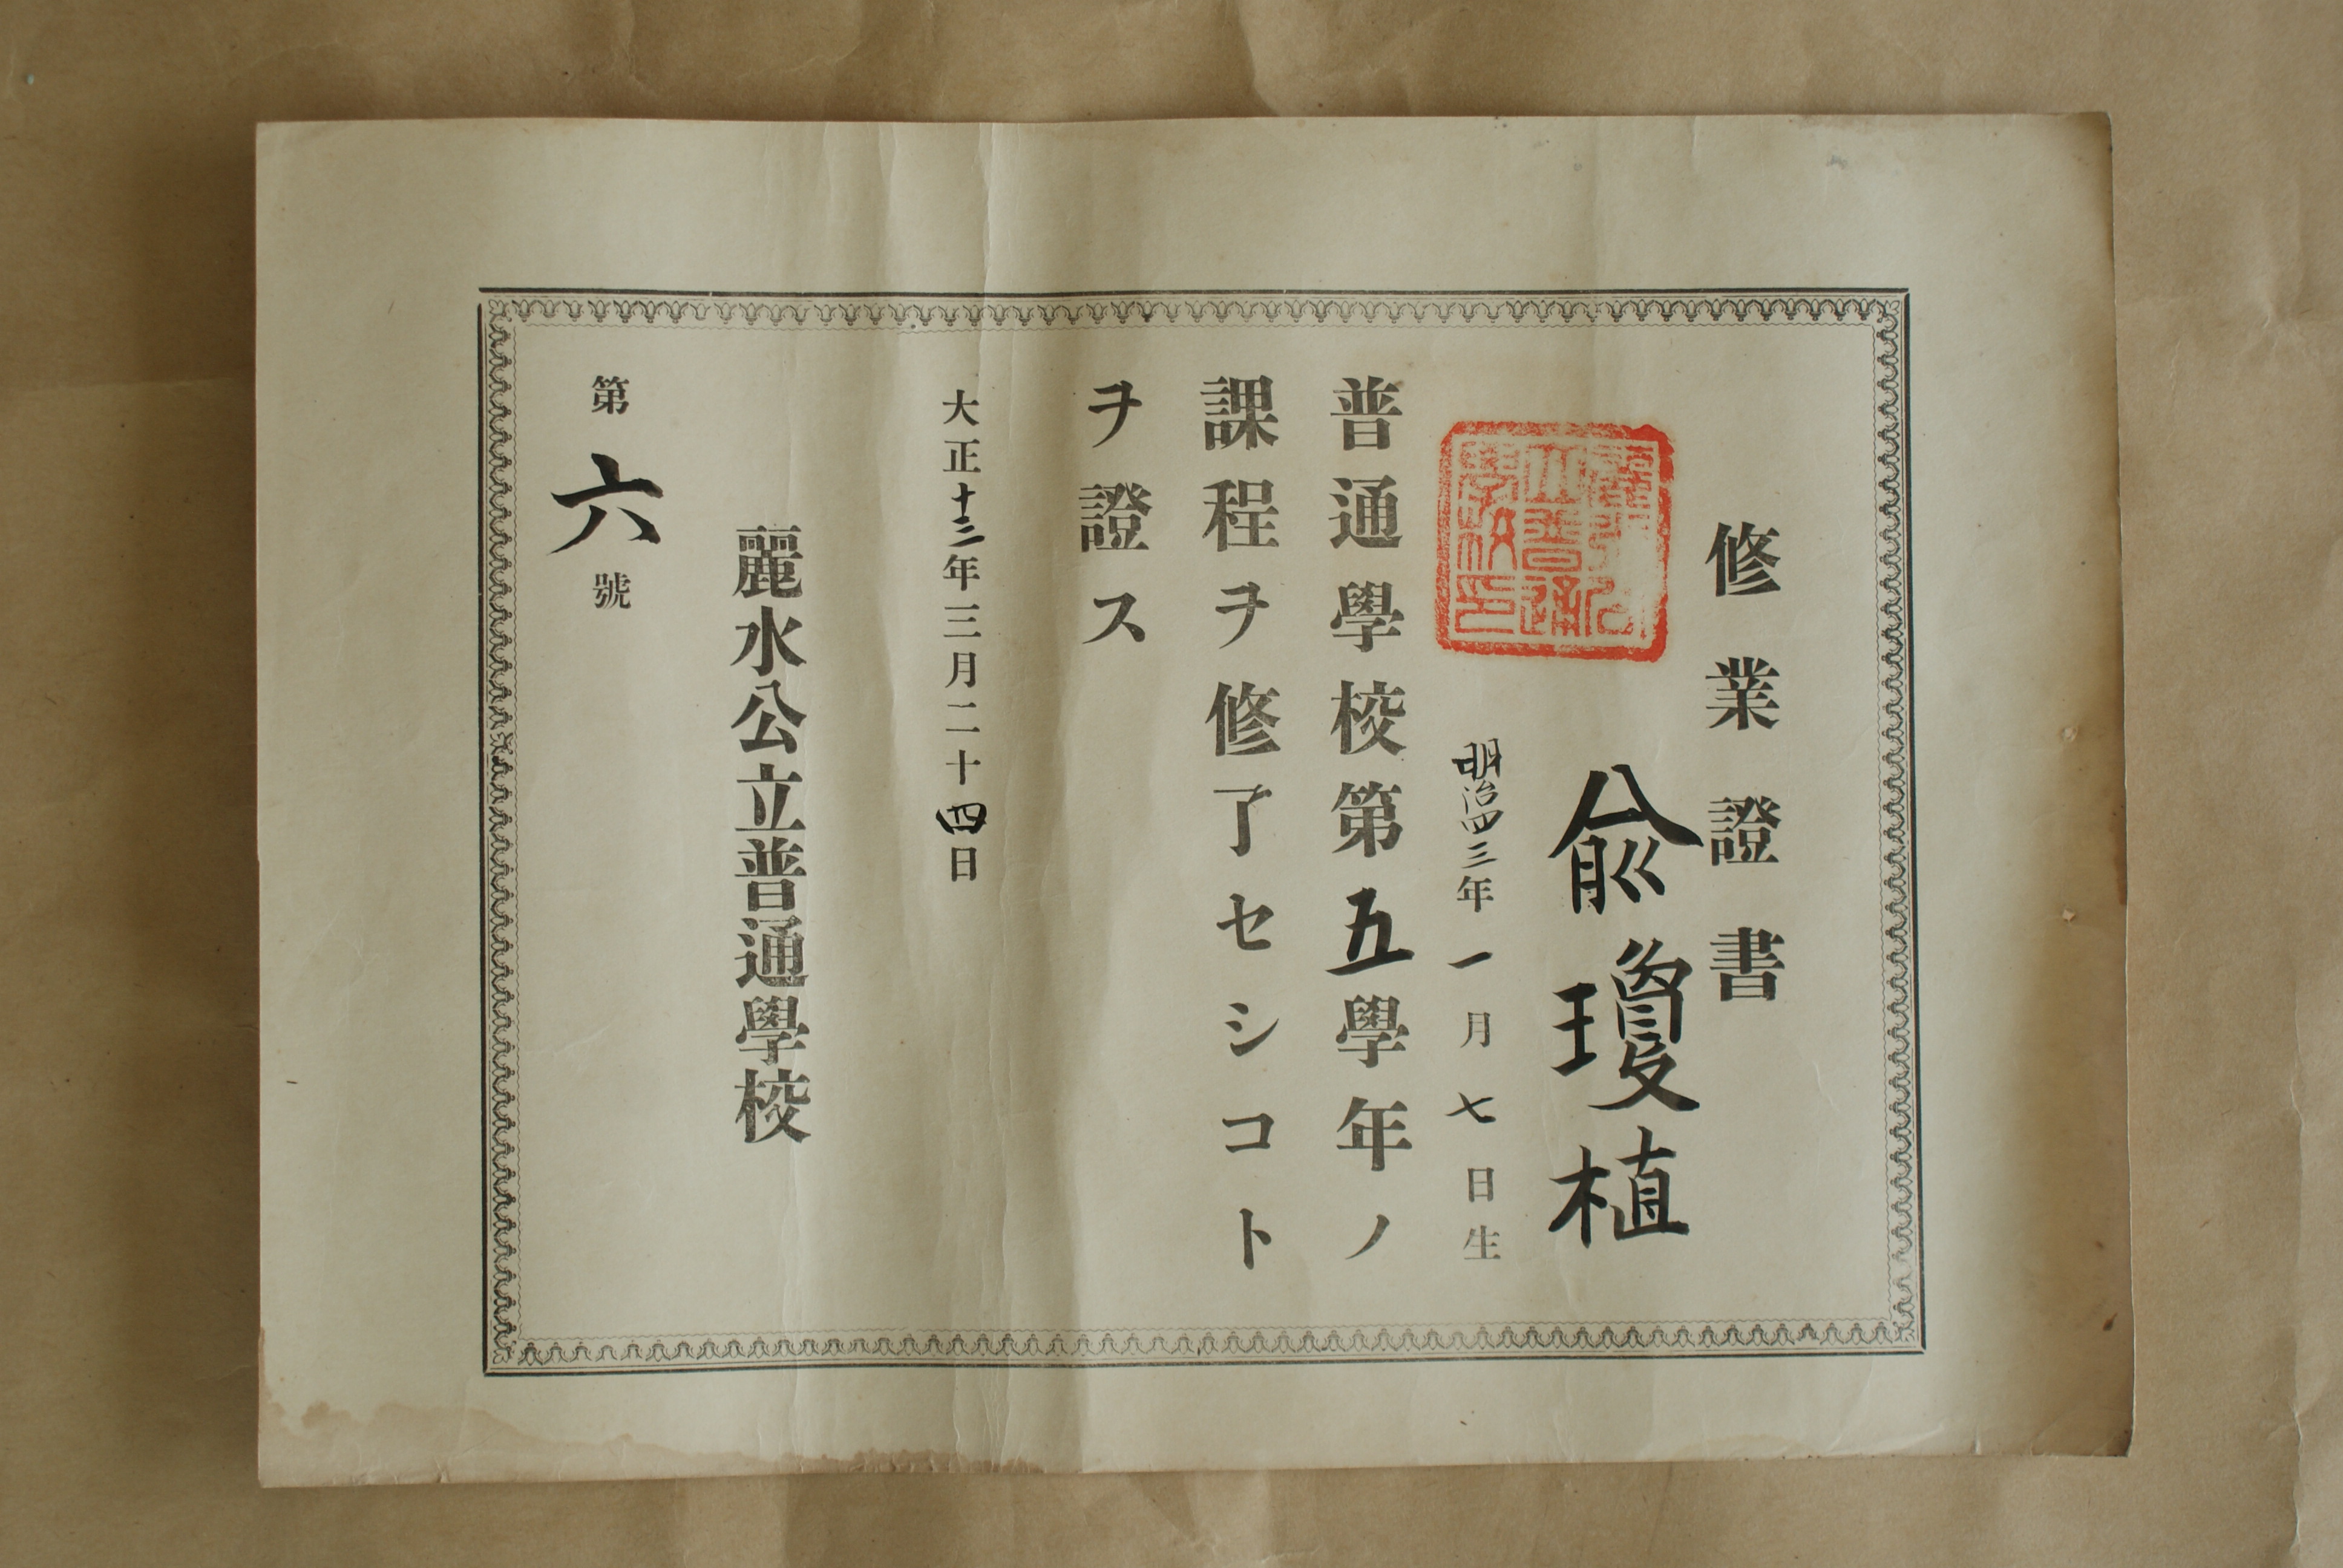 修業證書
兪瓊植
明治四三年一月七日生
普通學校第五學年ノ
課程ヲ修了セシコト
ヲ證ス
大正十三年三月二十四日
麗水公立普通學校
第六號
麗水公立普通學校印